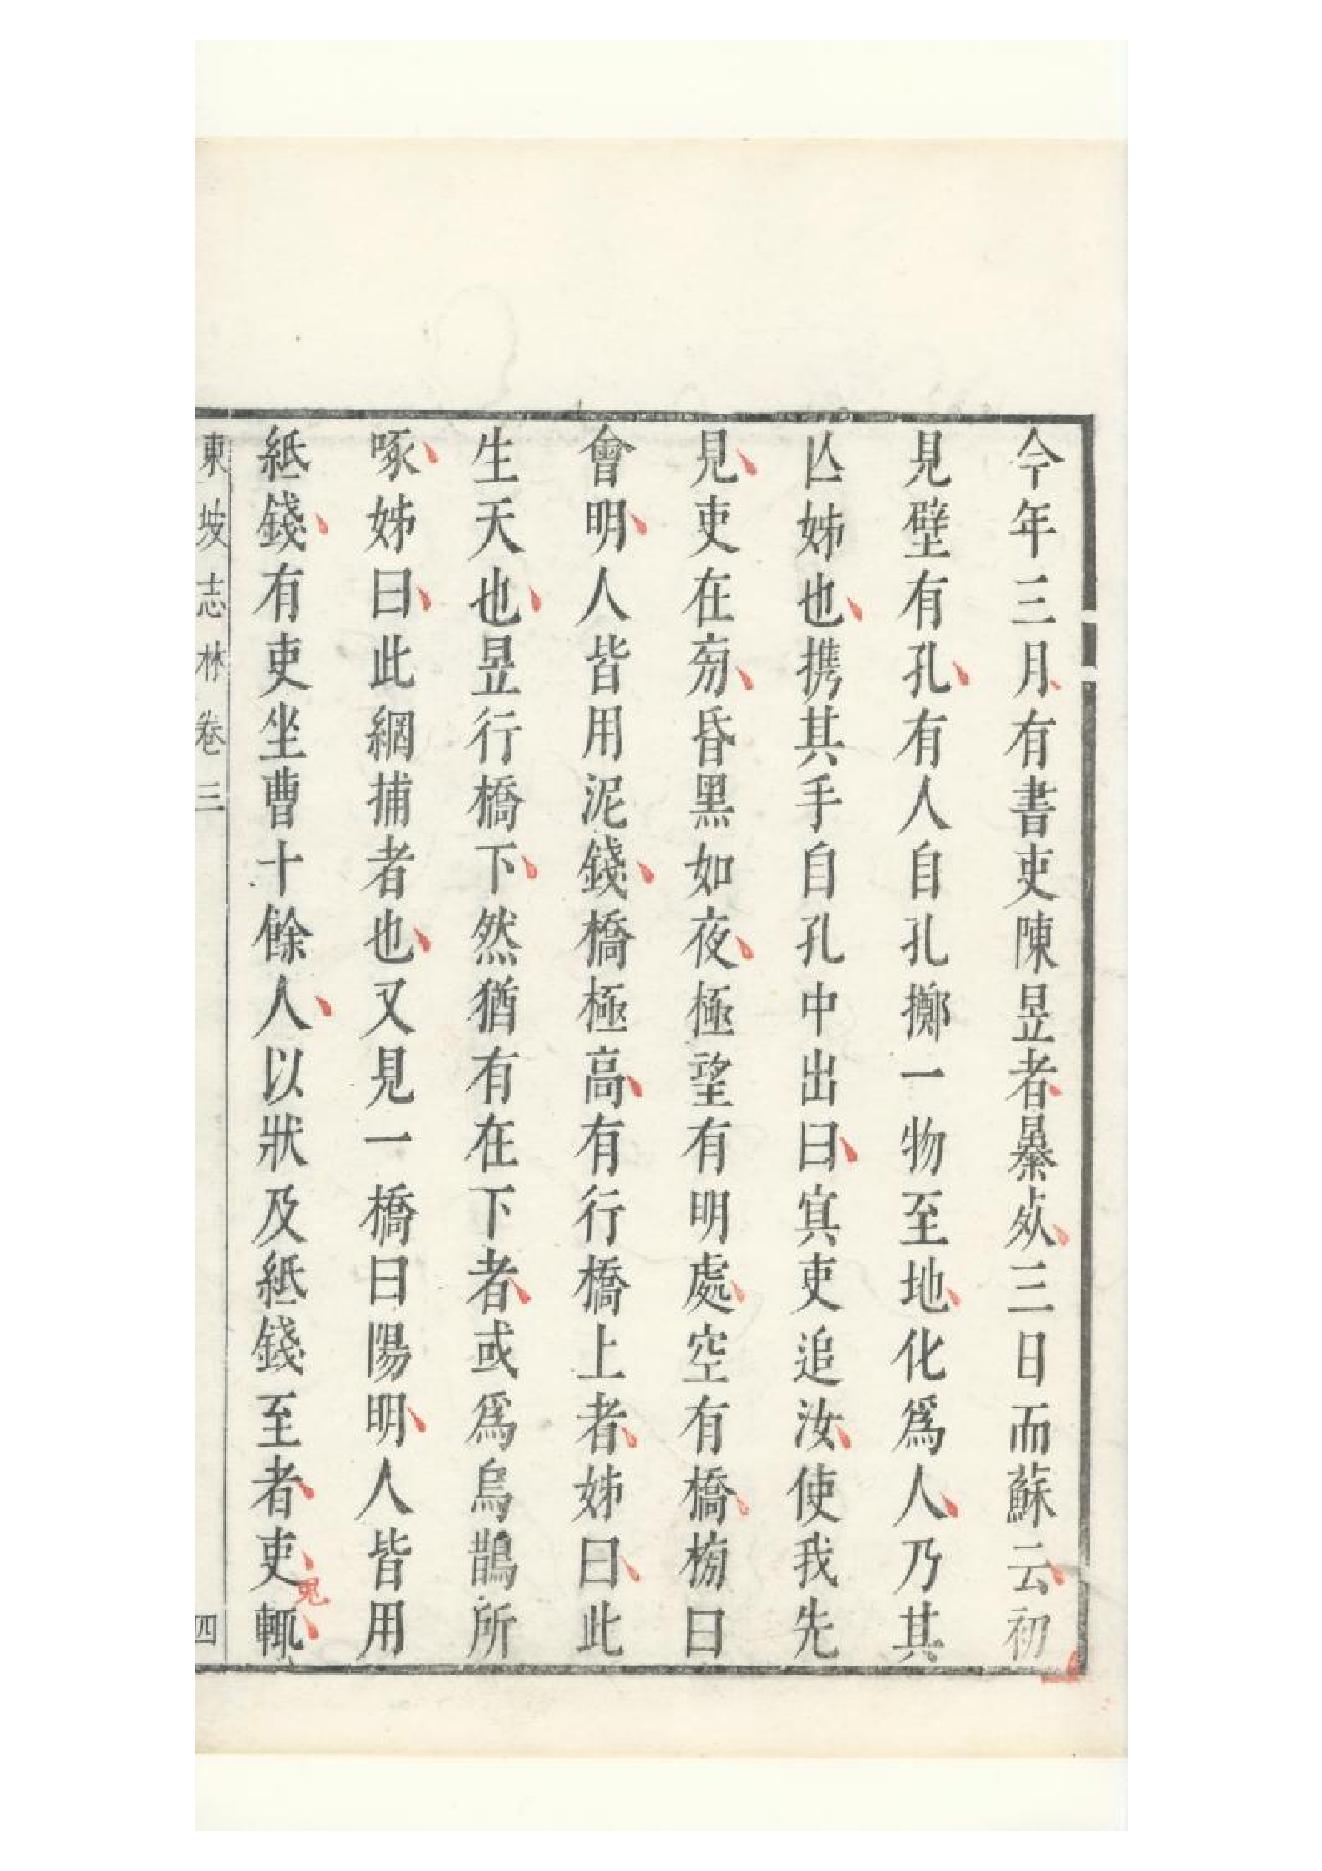 今年三月有書吏陳昱者暴死三日而蘇云初
見壁有孔有人自孔擲一物至地化爲人乃其
亾姊也携其手自孔中出曰冥吏追汝使我先
見吏在旁昏黑如夜極望有明處空有橋榜曰
會明人皆用泥錢橋極高有行橋上者姊曰此
生天也昱行橋下然猶有在下者或爲烏鵲所
啄姊曰此網捕者也又見一橋曰陽明人皆用
紙錢有吏坐曹十餘人以狀及紙錢至者吏輒
東坡志林卷三
四